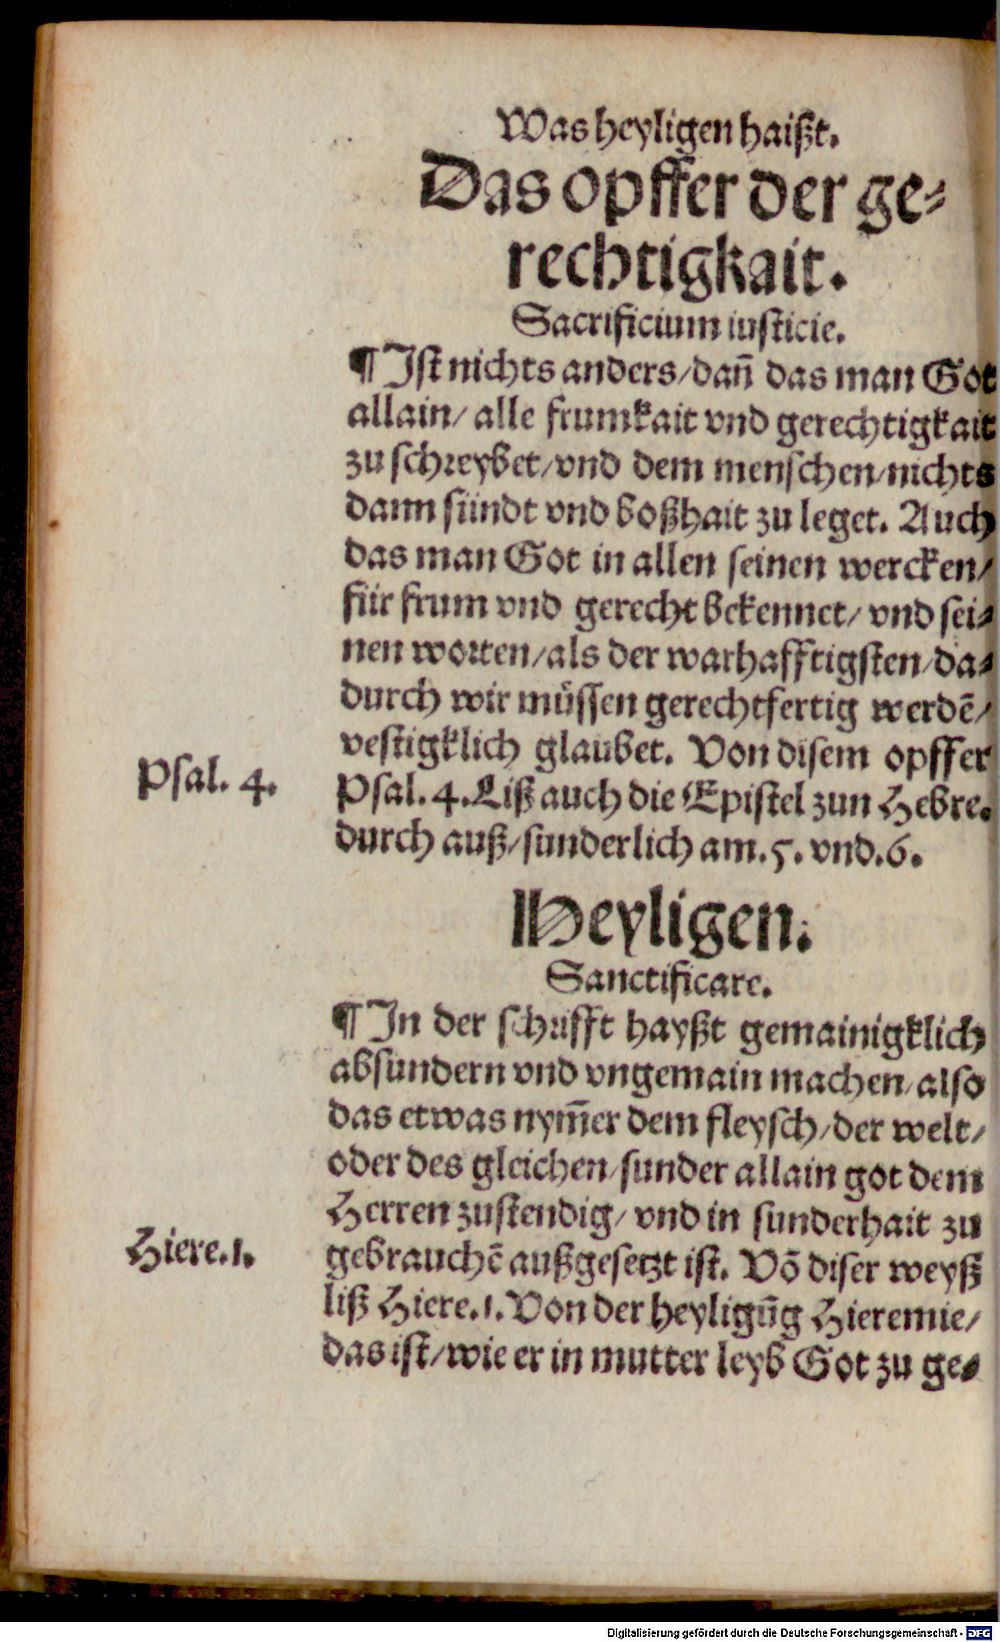 Was heyligen haißt.
Das opffer der ge⸗
rechtigkait.
Sacrificium iusticie.
¶ Ist nichts anders/ dañ das man Got
allain/ alle frumkait vnd gerechtigkait
zu schreybet/ vnd dem menschen/ nichts
dann sündt vnd boßhait zu leget. Auch
das man Got in allen seinen wercken/
für frum vnd gerecht bekennet/ vnd sei⸗
nen worten/ als der warhafftigsten/ da⸗
durch wir müssen gerechtfertig werdē/
vestigklich glaubet. Von disem opffer
Psal. 4.
Psal. 4. Liß auch die Epistel zun Hebre.
durch auß/ sunderlich am. 5. vnd. 6.
Heyligen.
Sanctificare.
¶ In der schrifft hayßt gemainigklich
absundern vnd vngemain machen/ also
das etwas nym̄er dem fleysch/ der welt/
oder des gleichen/ sunder allain got dem
Herren zustendig/ vnd in sunderhait zu
Hiere. 1.
gebrauchē außgesetzt ist. Võ diser weyß
liß Hiere. 1. Von der heyligũg Hieremie/
das ist/ wie er in mutter leyb Got zu ge⸗
Digitalisierung gefördert durch die Deutsche Forschungsgemeinschaft - DFG